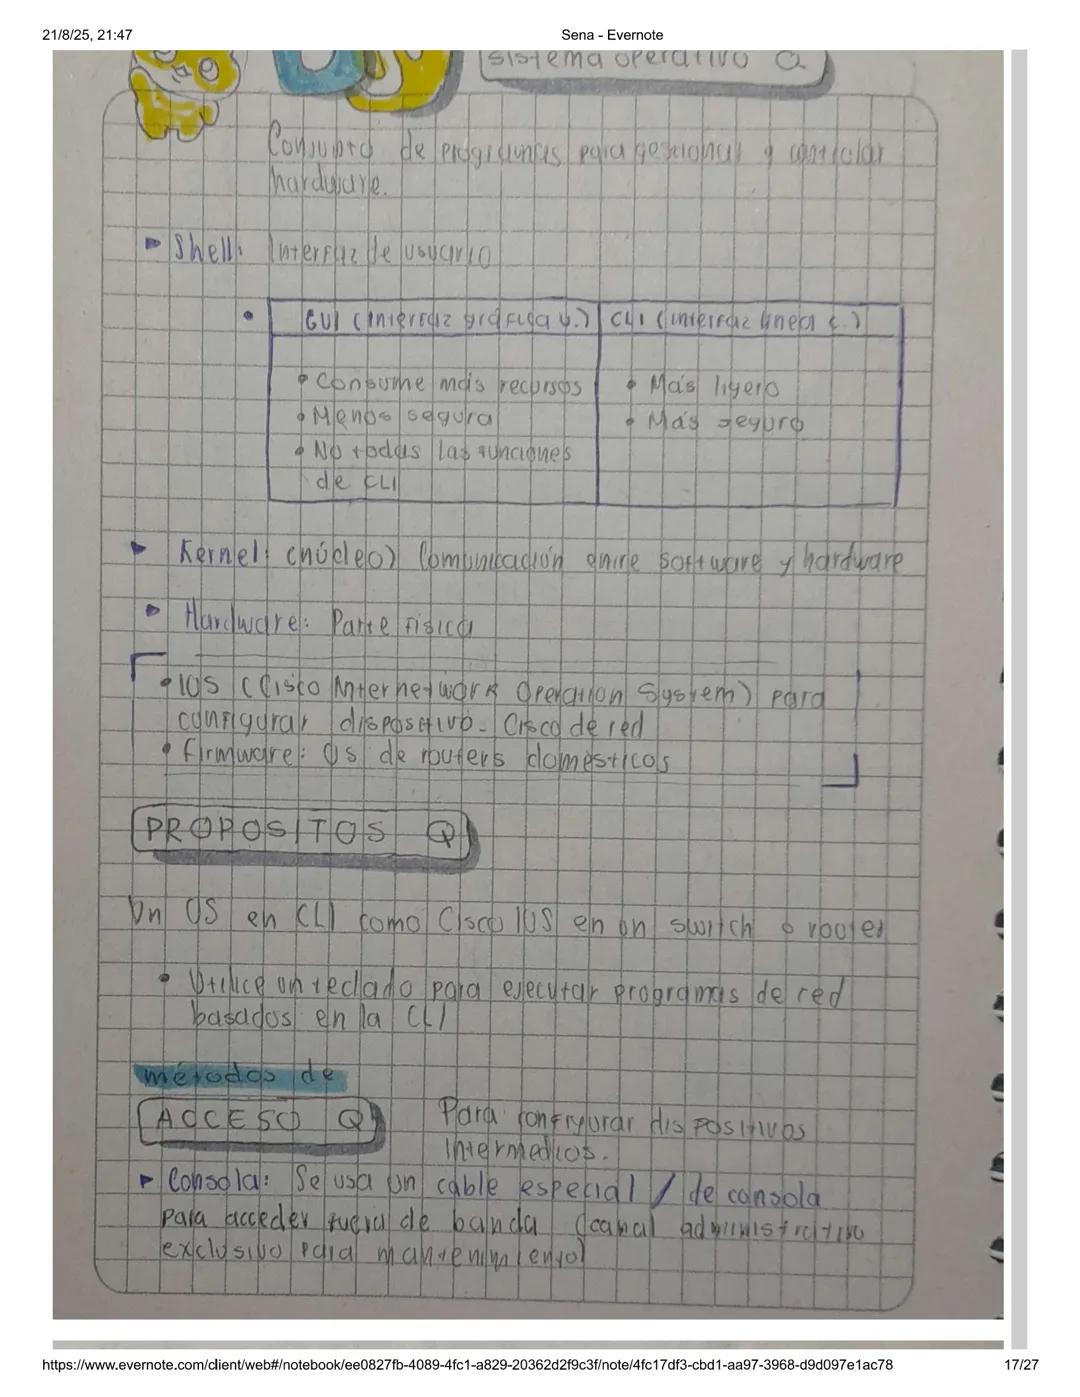 21/8/25, 21:47
Sena - Evernote
sistema operativo
Conjunto de programas para gestionar y controlar
hardware.
Shell: Interfaz de usuario
GUI (interfaz gráfica u.)
CLI (interfaz línea c.)
• Consume más recursos
• Menos segura
• No todas las funciones
de CLI
• Más ligero
• Más seguro
Kernel: (núcleo) Comunicación entre software y hardware
Hardware: Parte física
• IOS (Cisco Internetwork Operation System) para
configurar dispositivo- Cisco de red
• Firmware: OS de routers domésticos
PROPOSITOS
Un OS en CLI como Cisco IOS en un switch o router
• Utilice un teclado para ejecutar programas de red
basados en la CLI
métodos de
ACCESO
Para configurar dispositivos
intermedios.
Consola: Se usa un cable especial / de consola
para acceder fuera de banda (canal administrativo
exclusivo para mantenimiento)
https://www.evernote.com/client/web#/notebook/ee0827fb-4089-4fc1-a829-20362d2f9c3f/note/4fc17df3-cbd1-aa97-3968-d9d097e1ac78
17/27